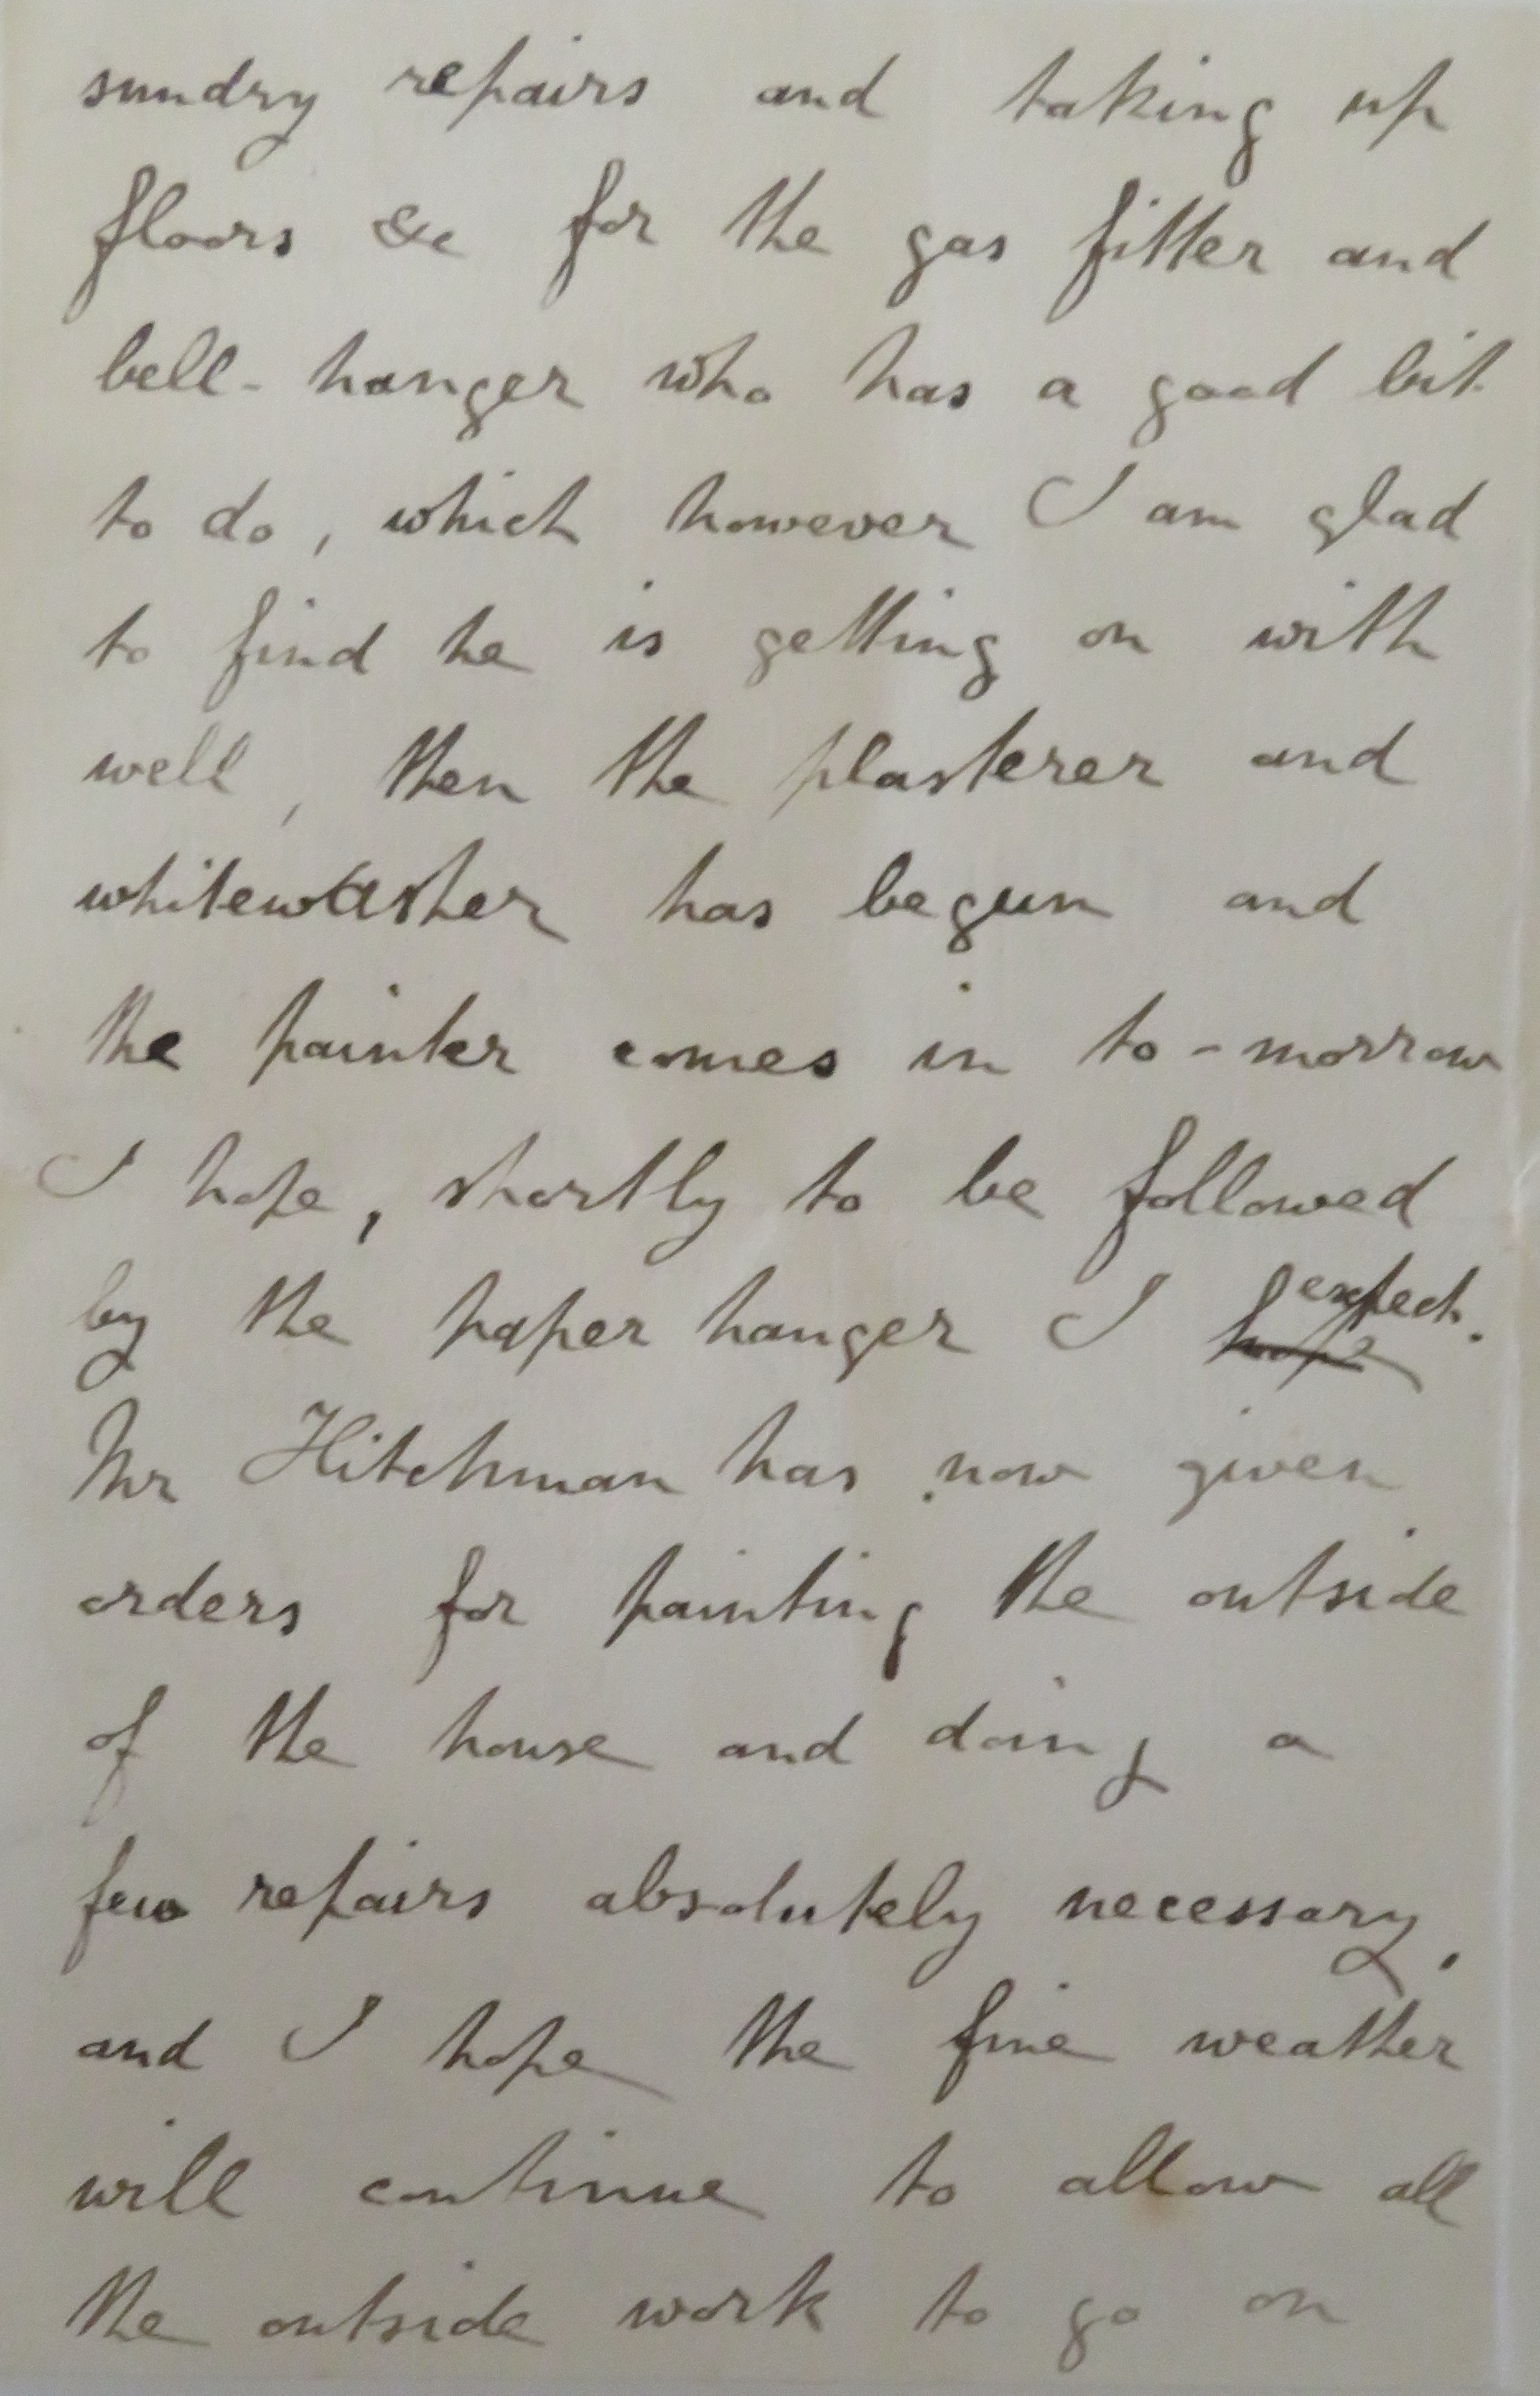 sundry repairs and taking up
floors &c for the gas fitter and
bell-hanger who has a good bit
to do, which however I am glad
to find he is getting on with
well, then the plasterer and
whitewasher has begun and
the painter comes in to-morrow
I hope, shortly to be followed
by the paper hanger I hope expect.
Mr Hitchman has now given
orders for painting the outside
of the house and doing a
few repairs absolutely necessary,
and I hope the fine weather
will continue to allow all
the outside work to go on